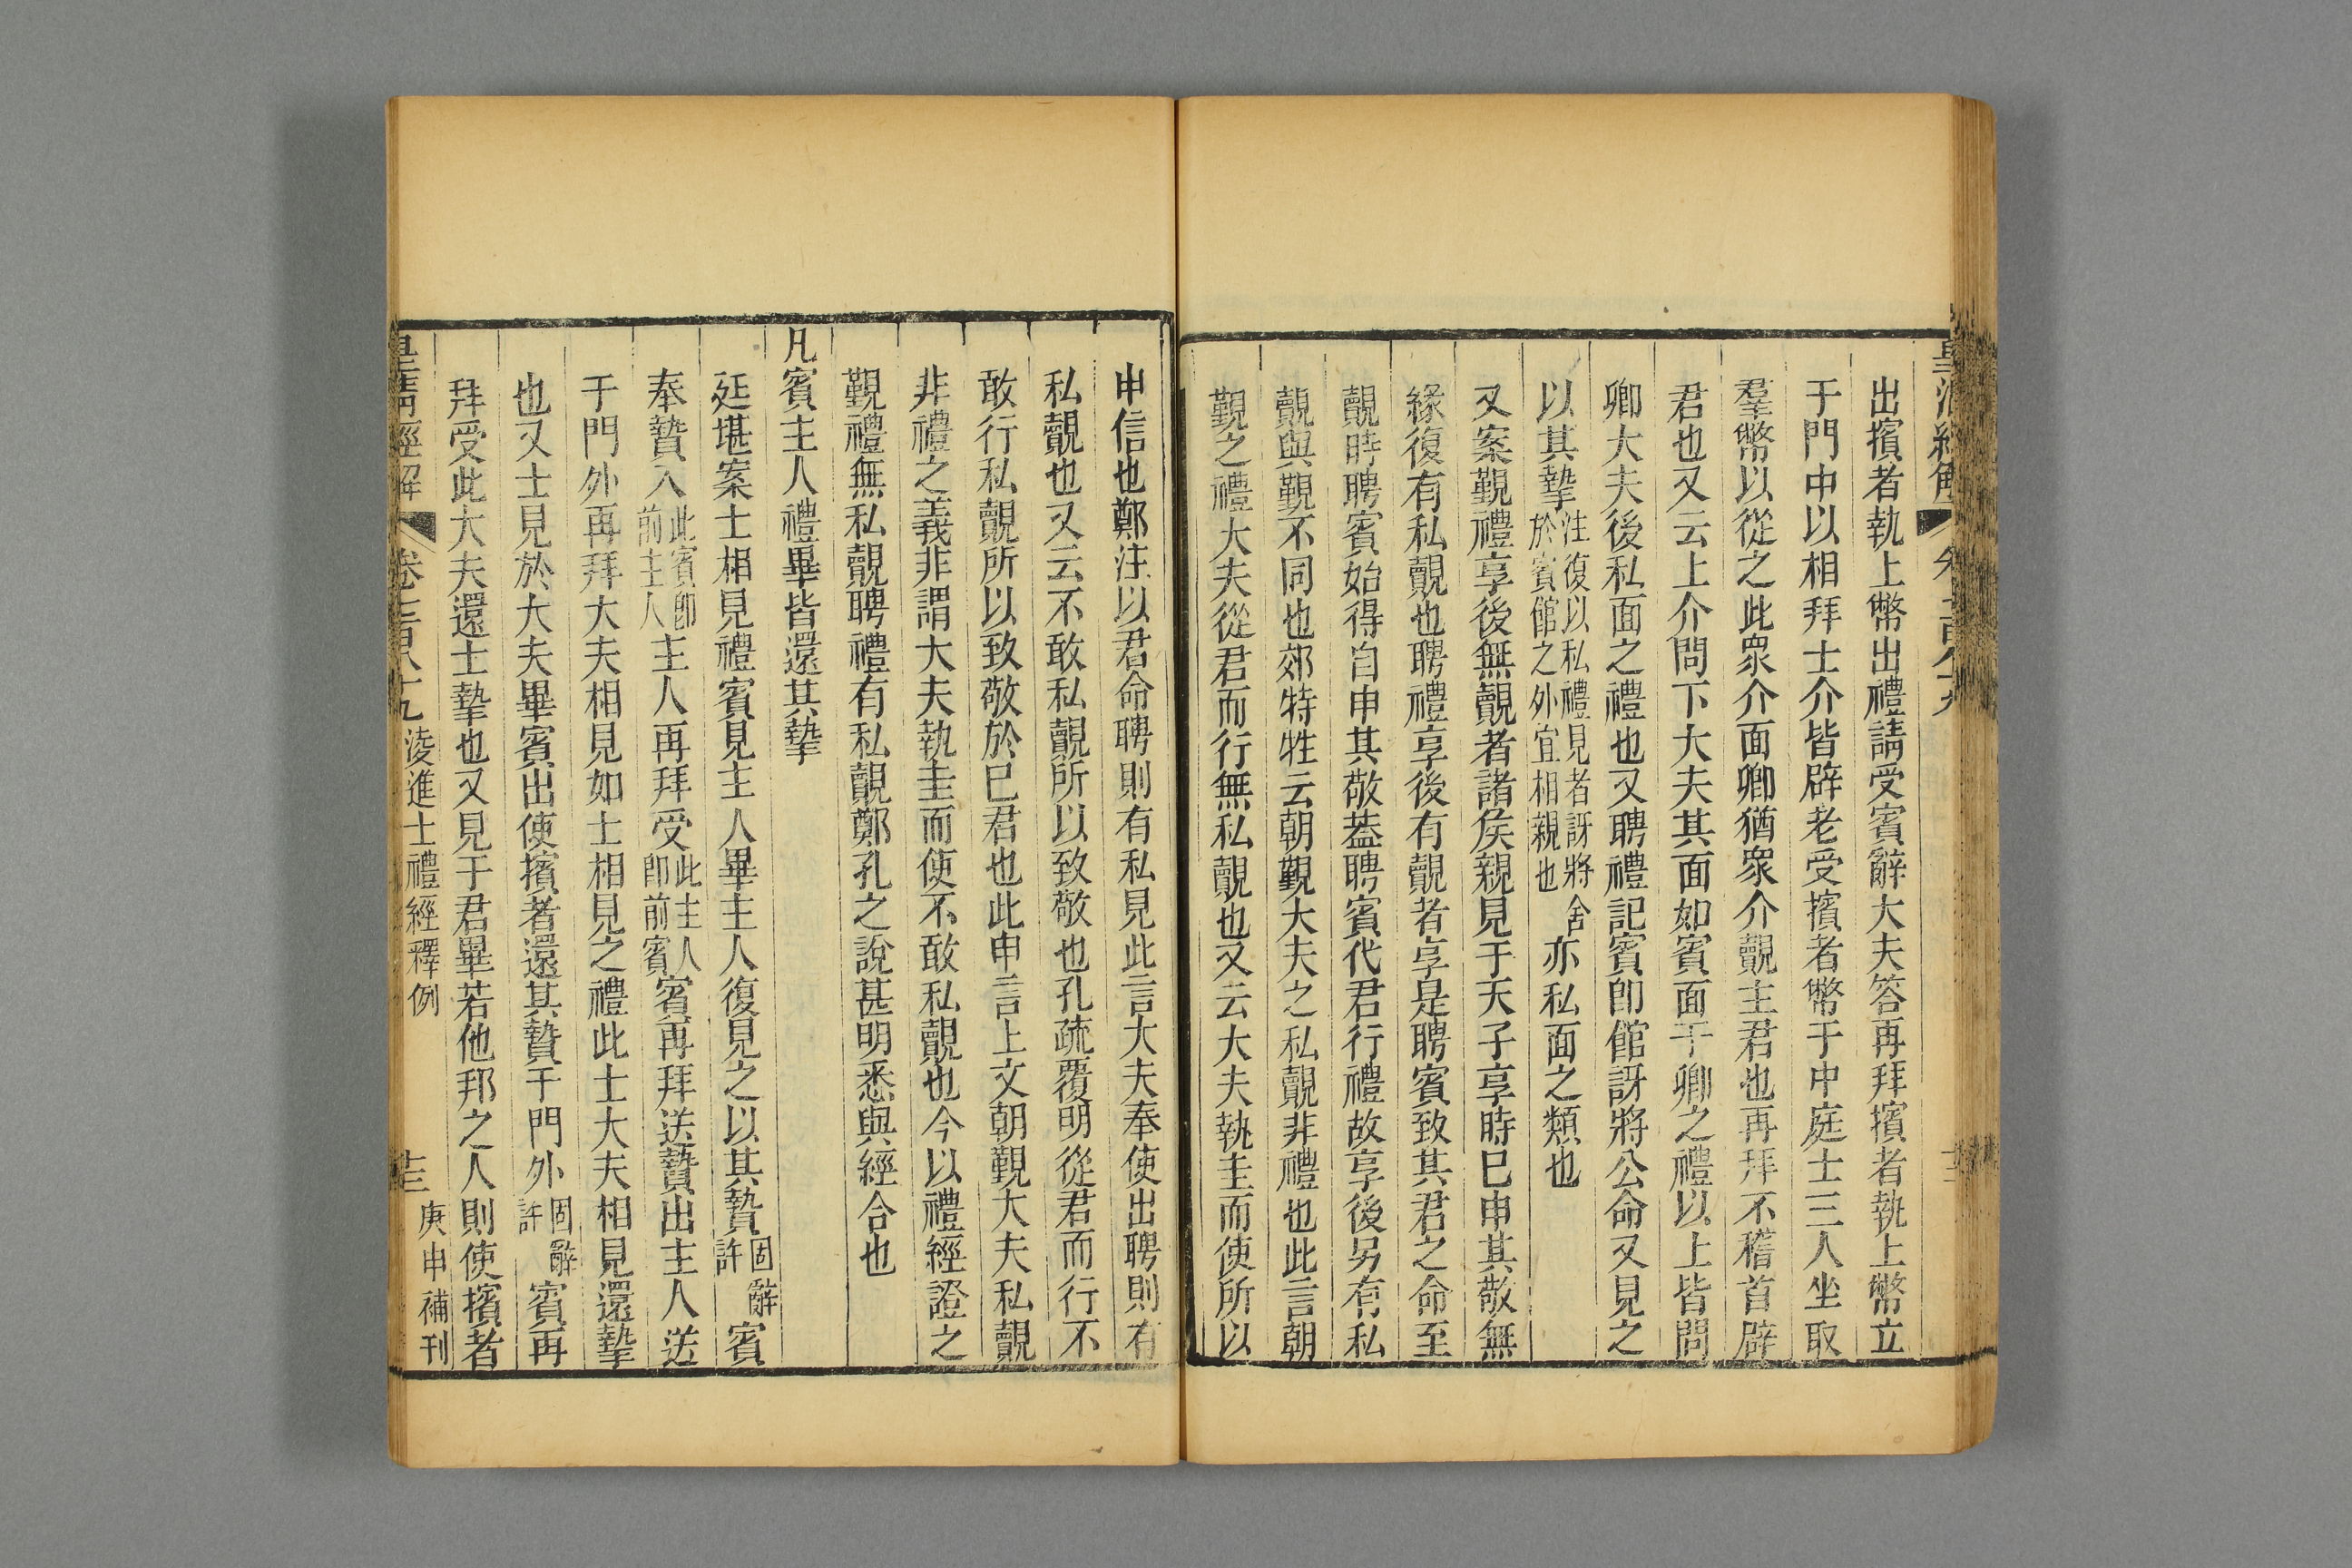 出擯者執上幣出禮請受賓辭大夫答再拜擯者執上幣立
于門中以相拜士介皆辟老受擯者幣于中庭士三人坐取
羣幣以從之此眾介面卿猶眾介覿主君也再拜不稽首辟
君也又云上介問下大夫其面如賓面于卿之禮以上皆問
卿大夫後私面之禮也又聘禮記賓即館訝將公命又見之
以其摯注復以私禮見者訝將舍於賓館之外宜相親也亦私面之類也
又案覲禮享後無覿者諸侯親見于天子享時已申其敬無
緣復有私覿也聘禮享後有覿者享是聘賓致其君之命至
覿時聘賓始得自申其敬葢聘賓代君行禮故享後另有私
覿與覲不同也郊特牲云朝覲大夫之私覿非禮也此言朝
覲之禮大夫從君而行無私覿也又云大夫執圭而使所以
申信也鄭注以君命聘則有私見此言大夫奉使出聘則有
私覿也又云不敢私覿所以致敬也孔疏覆明從君而行不
敢行私覿所以致敬於已君也此申言上文朝覲大夫私覿
非禮之義非謂大夫執圭而使不敢私覿也今以禮經證之
覲禮無私覿聘禮有私覿鄭孔之說甚明悉與經合也
凡賓主人禮畢皆還其摯
廷堪案士相見禮賓見主人畢主人復見之以其贄固辭許賓
奉贄入此賓卽前主人主人再拜受此主人卽前賓賓再拜送贄出主人送
于門外再拜大夫相見如士相見之禮此士大夫相見還摯
也又士見於大夫畢賓出使擯者還其贄于門外固辭許賓再
拜受此大夫還士摯也又見于君畢若他邦之人則使擯者
皇清經解
卷七百八十九
淩進士禮經釋例
十三
庚申補刊